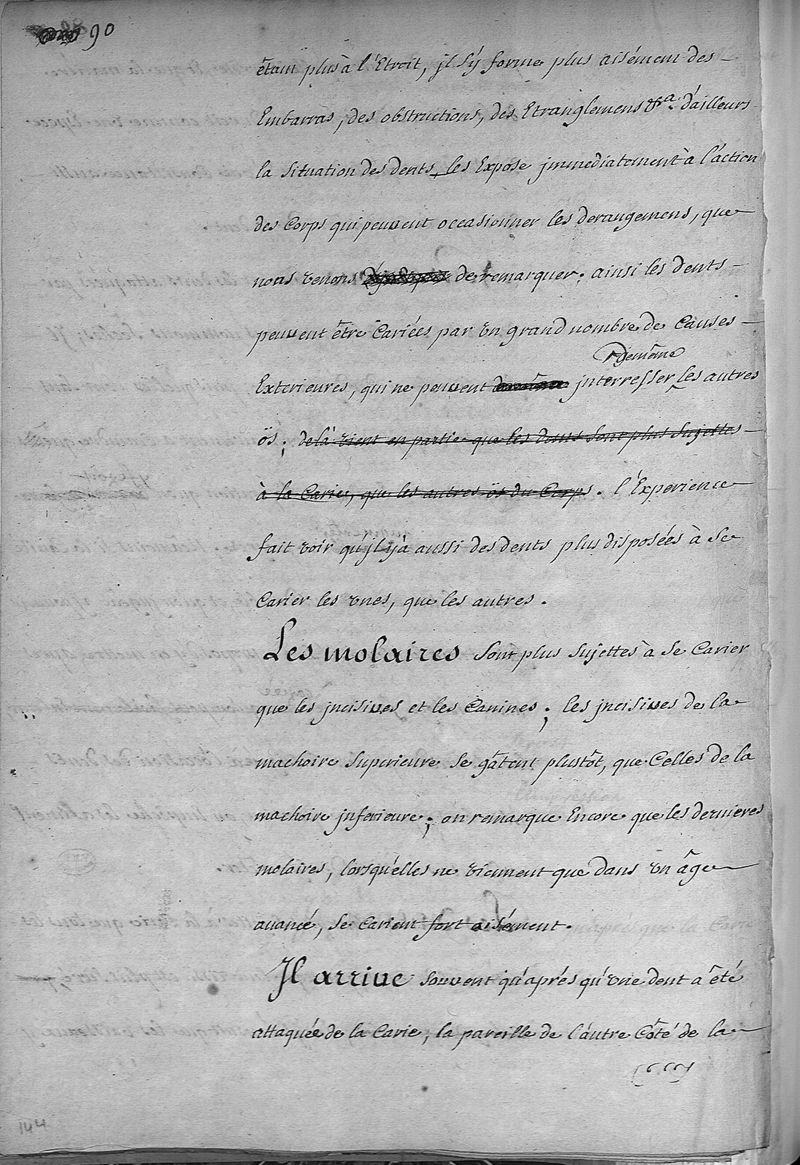 90
étant plus à l'Etroit, jl s'y forme plus aisément des
Embarras, des obstructions, des Etranglemens &a. d'ailleurs
la situation des dents, les Expose jmmediatement à l'action
des Corps qui peuvent occasionner les derangemens, que
nous venons de remarquer; ainsi les dents
peuvent être Cariées par vn grand nombre de Causes
de même
Exterieures, qui ne peuvent jnterresser les autres
ös; delà vient en partie que les dents sont plus sujettes
à la Carie, que les autres ös du Corps. l'Experience
fait voir qu'jl y a aussi des dents plus disposées à se
Carier les vnes, que les autres.
Les molaires sont plus sujettes à se Carier
que les jncisives et les Canines; les jncisives de la
machoire superieure se gâtent plustôt, que Celles de la
machoire jnferieure; on remarque Encore que les dernieres
molaires, lorsqu'elles ne viennent que dans vn âge
avancé, se Carient fort aisément.
Jl arrive souvent qu'aprés qu'vne dent a été
attaquée de la Carie, la pareille de l'autre Côté de la
144